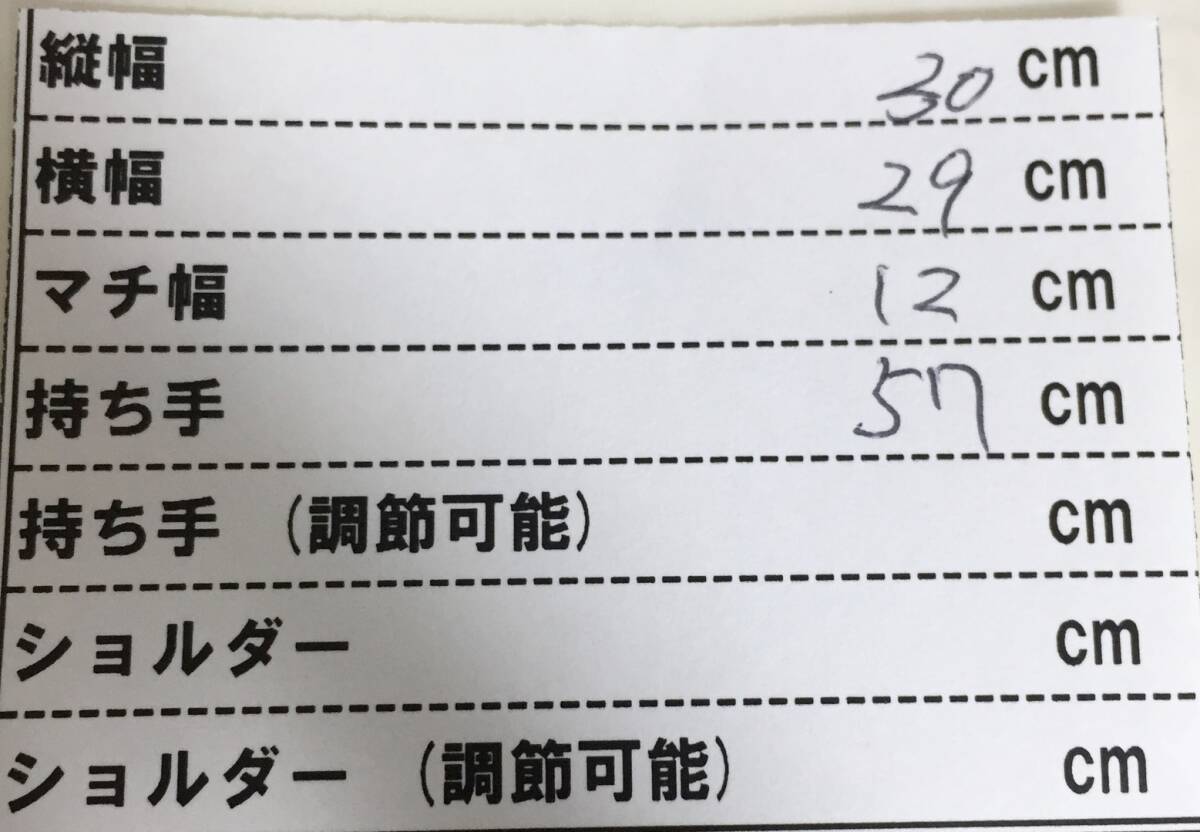 縦幅 30 cm
横幅 29 cm
マチ幅 12 cm
持ち手 57 cm
持ち手 (調節可能) cm
ショルダー cm
ショルダー (調節可能) cm